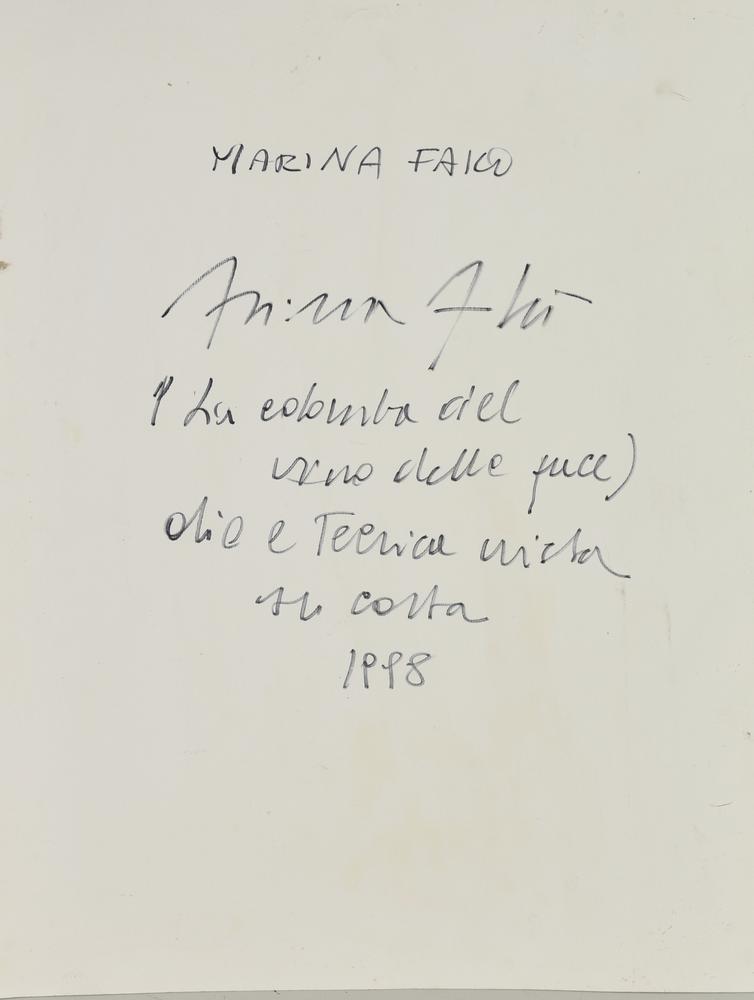 MARINA FALCO
Marina Falco
"La colomba del
vano delle luce)
olio e Tecnica mista
su carta
1998